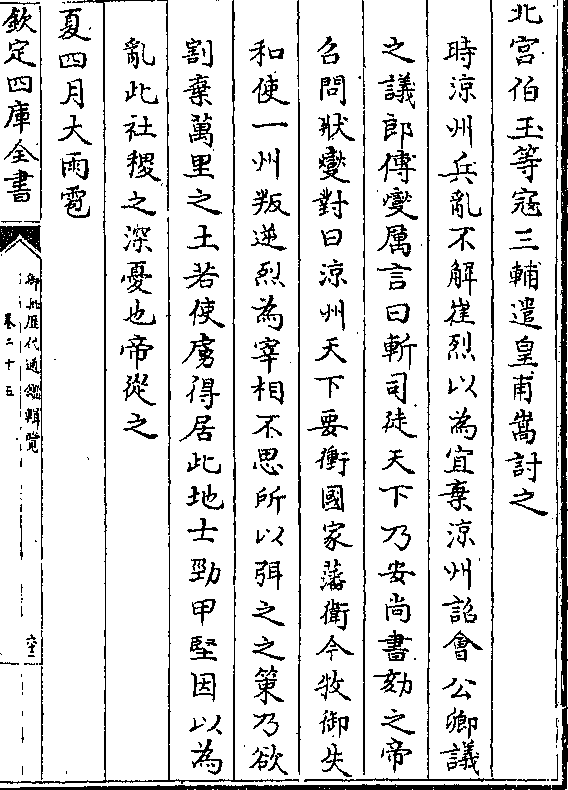 北宫伯玉等寇三輔遣皇甫嵩討之
時涼州兵亂不解崔烈以為宜棄涼州詔會公卿議
之議郎傅燮厲言曰斬司徒天下乃安尚書劾之帝
召問狀燮對曰涼州天下要衝國家藩衛今牧御失
和使一州叛逆烈為宰相不思所以弭之之策乃欲
割棄萬里之土若使虜得居此地士勁甲堅因以為
亂此社稷之深憂也帝從之
夏四月大雨雹
欽定四庫全書
御批歷代通鑑輯覽
卷二十五